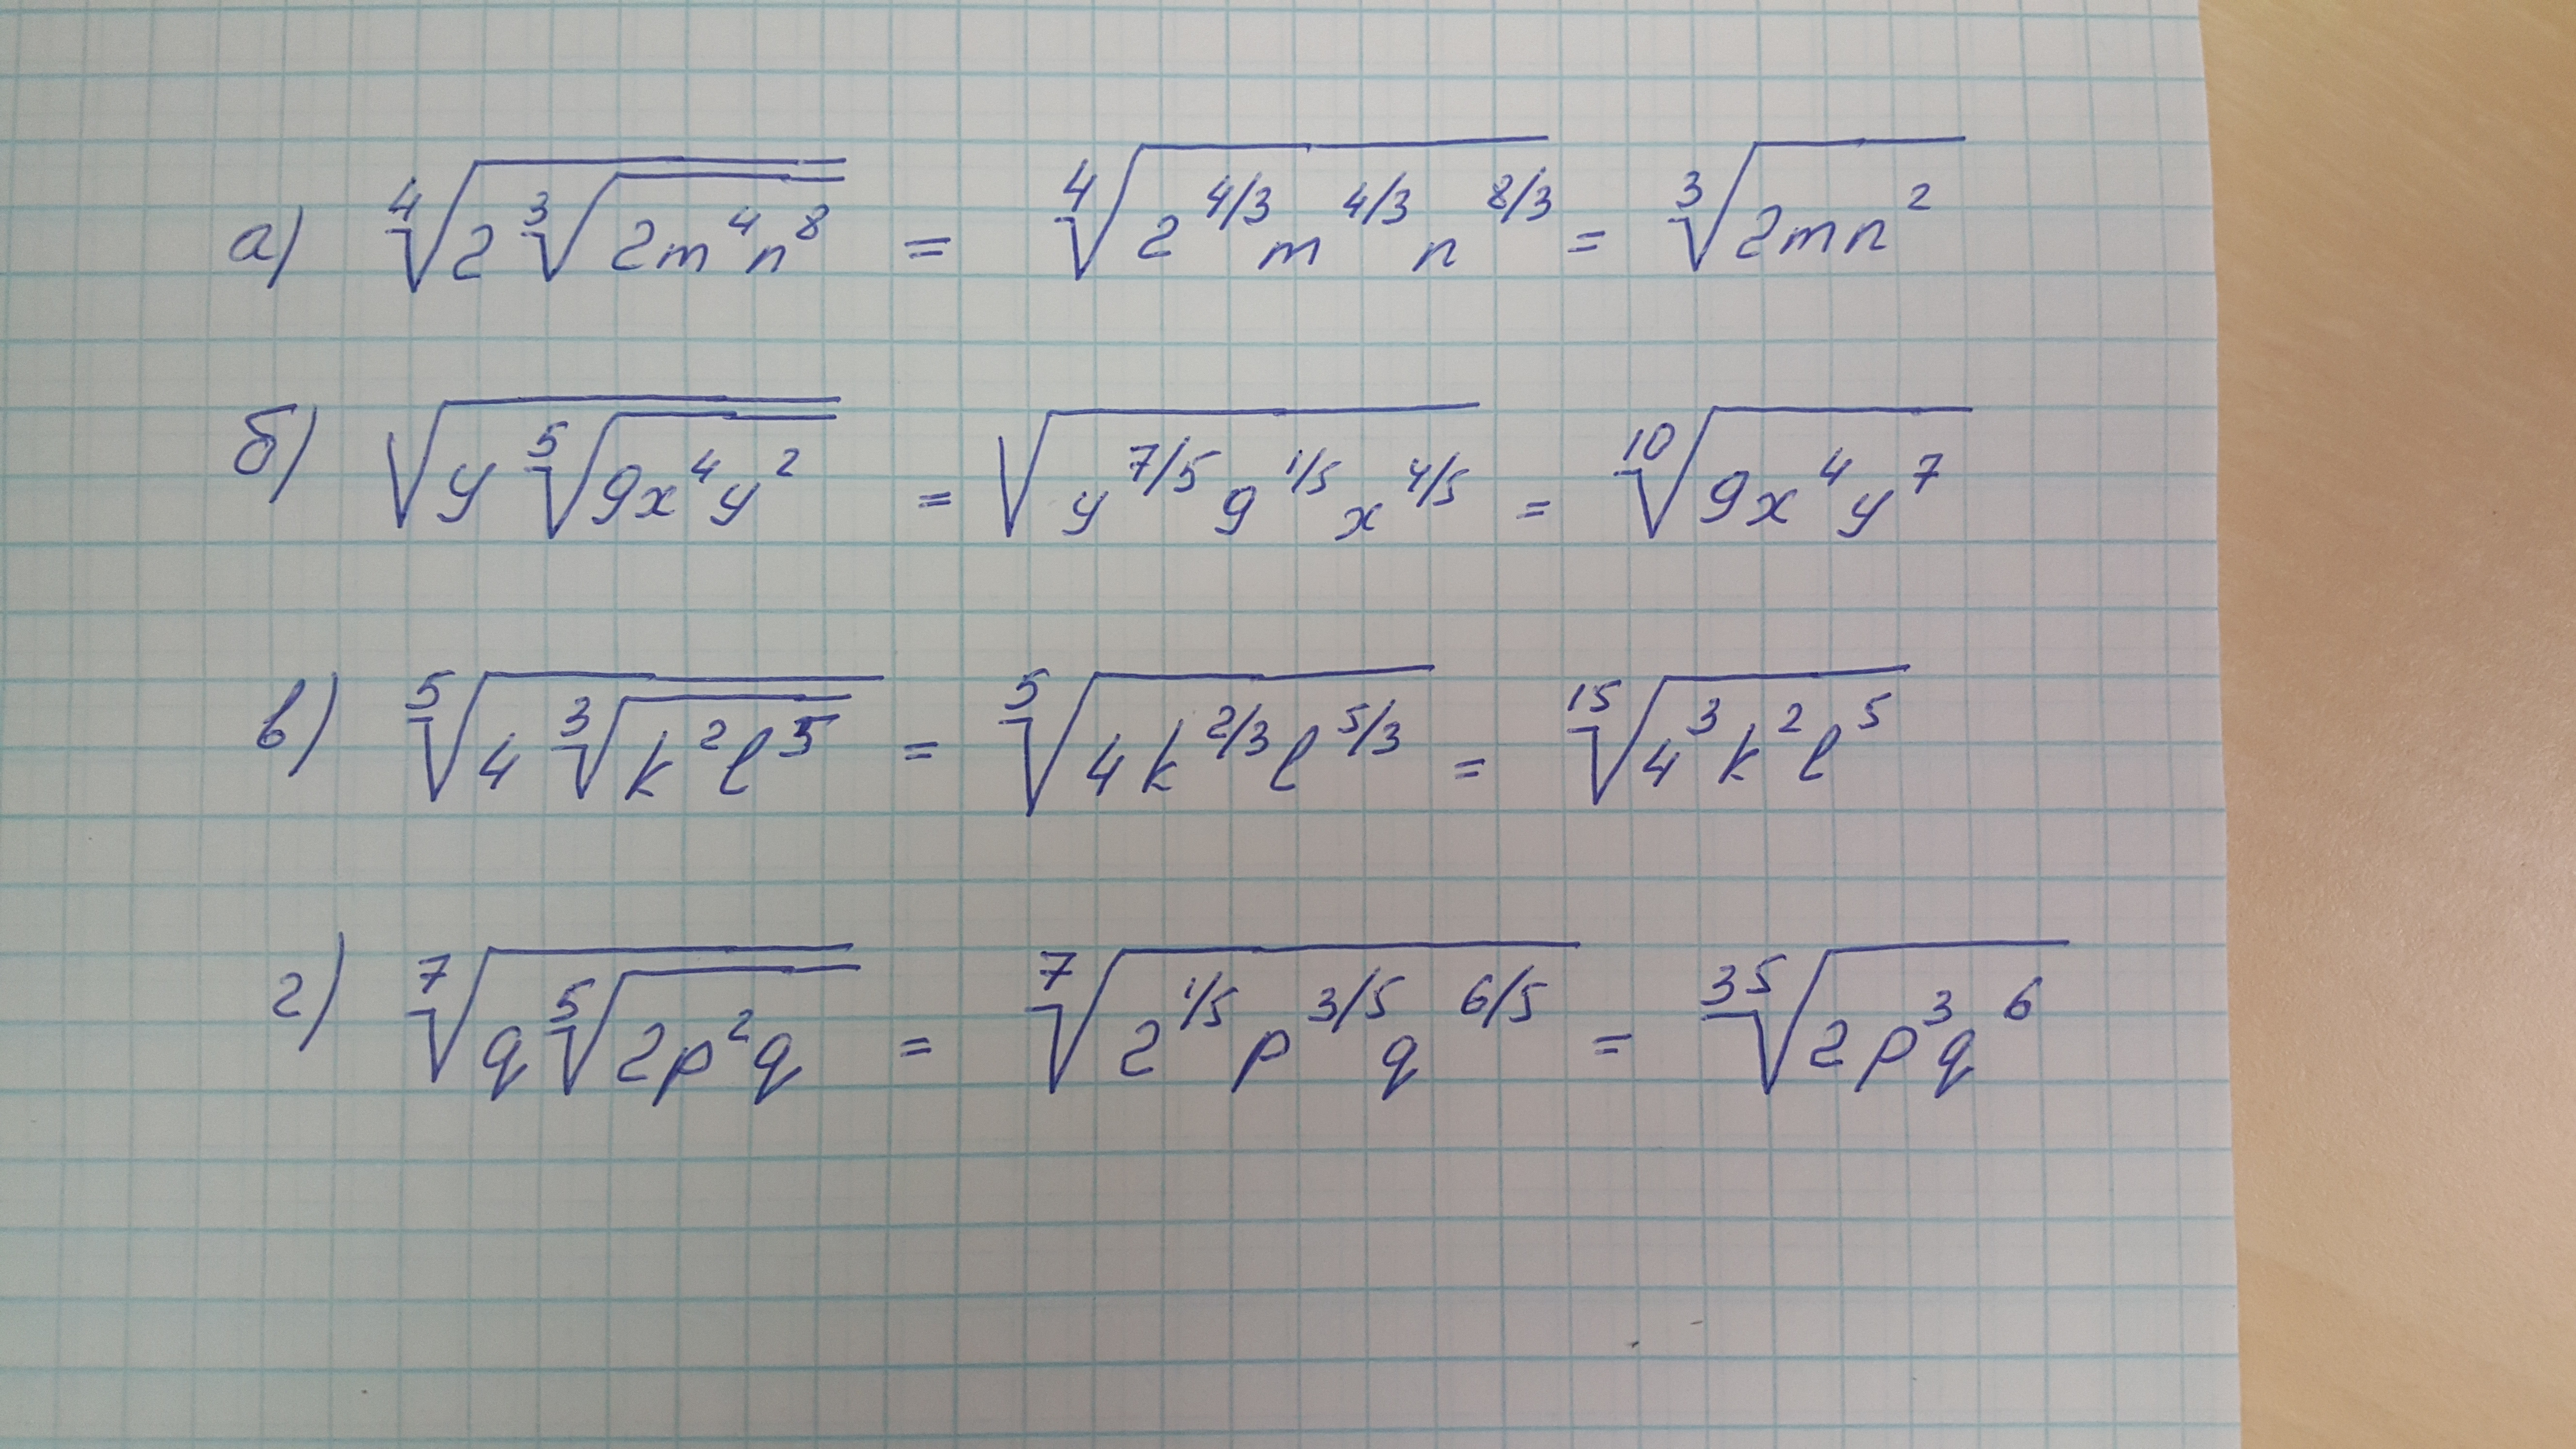 а) ∜(2∛(2m⁴n⁸)) = ∜(2^(4/3) m^(4/3) n^(8/3)) = ∛(2mn²)
б) √(y ⁵√(9x⁴y²)) = √(y^(7/5) 9^(1/5) x^(4/5)) = ¹⁰√(9x⁴y⁷)
в) ⁵√(4∛(k²l⁵)) = ⁵√(4k^(2/3) l^(5/3)) = ¹⁵√(4³k²l⁵)
г) ⁷√(q ⁵√(2p²q)) = ⁷√(2^(1/5) p^(3/5) q^(6/5)) = ³⁵√(2p³q⁶)